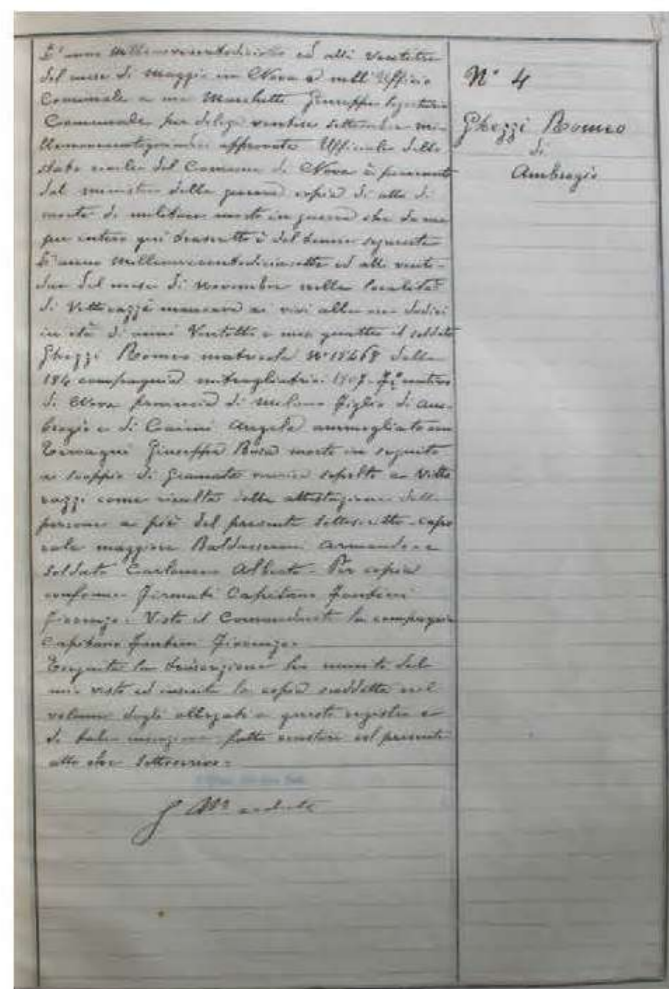 L'anno Millenovecentodiciotto ed alli Ventitre
del mese di Maggio in Nova e nell'Ufficio
Comunale a me Marchetti Giuseppe Segretario
Comunale per delega ventisei Settembre mi-
llenovecentoquindici approvata Ufficiale dello
stato civile del Comune di Nova è pervenuta
dal ministero della guerra copia di atto di
morte di militare morto in guerra che da me
per intero qui trascritto è del tenore seguente
L'anno Millenovecentodiciasette ed alli venti-
due del mese di Novembre nella località
di mancava ai vivi alle ore dodici
in età di anni Ventotto e mesi quattro il soldato
Ghezzi Romeo matricola N° 15468 della
184 compagnia mitragliatrici 1907. nativo
di Nova provincia di Milano figlio di Am-
brogio e di Angela ammogliato con
Giuseppa Rosa morto in seguito
a scoppio di Granata sepolto a
come risulta dalla attestazione delle
persone a piè del presente sottoscritte - capo
rale maggiore Armando - e
soldato Alberto - Per copia
conforme - Firmati Capitano
Visto il Comandante la compagnia
Capitano
Eseguita la trascrizione ho munito del
mio visto ed inserito la copia suddetta nel
volume degli allegati a questo registro e
di tale inserzione fatto constare nel presente
atto che sottoscrivo -
N° 4
Ghezzi Romeo
di
Ambrogio